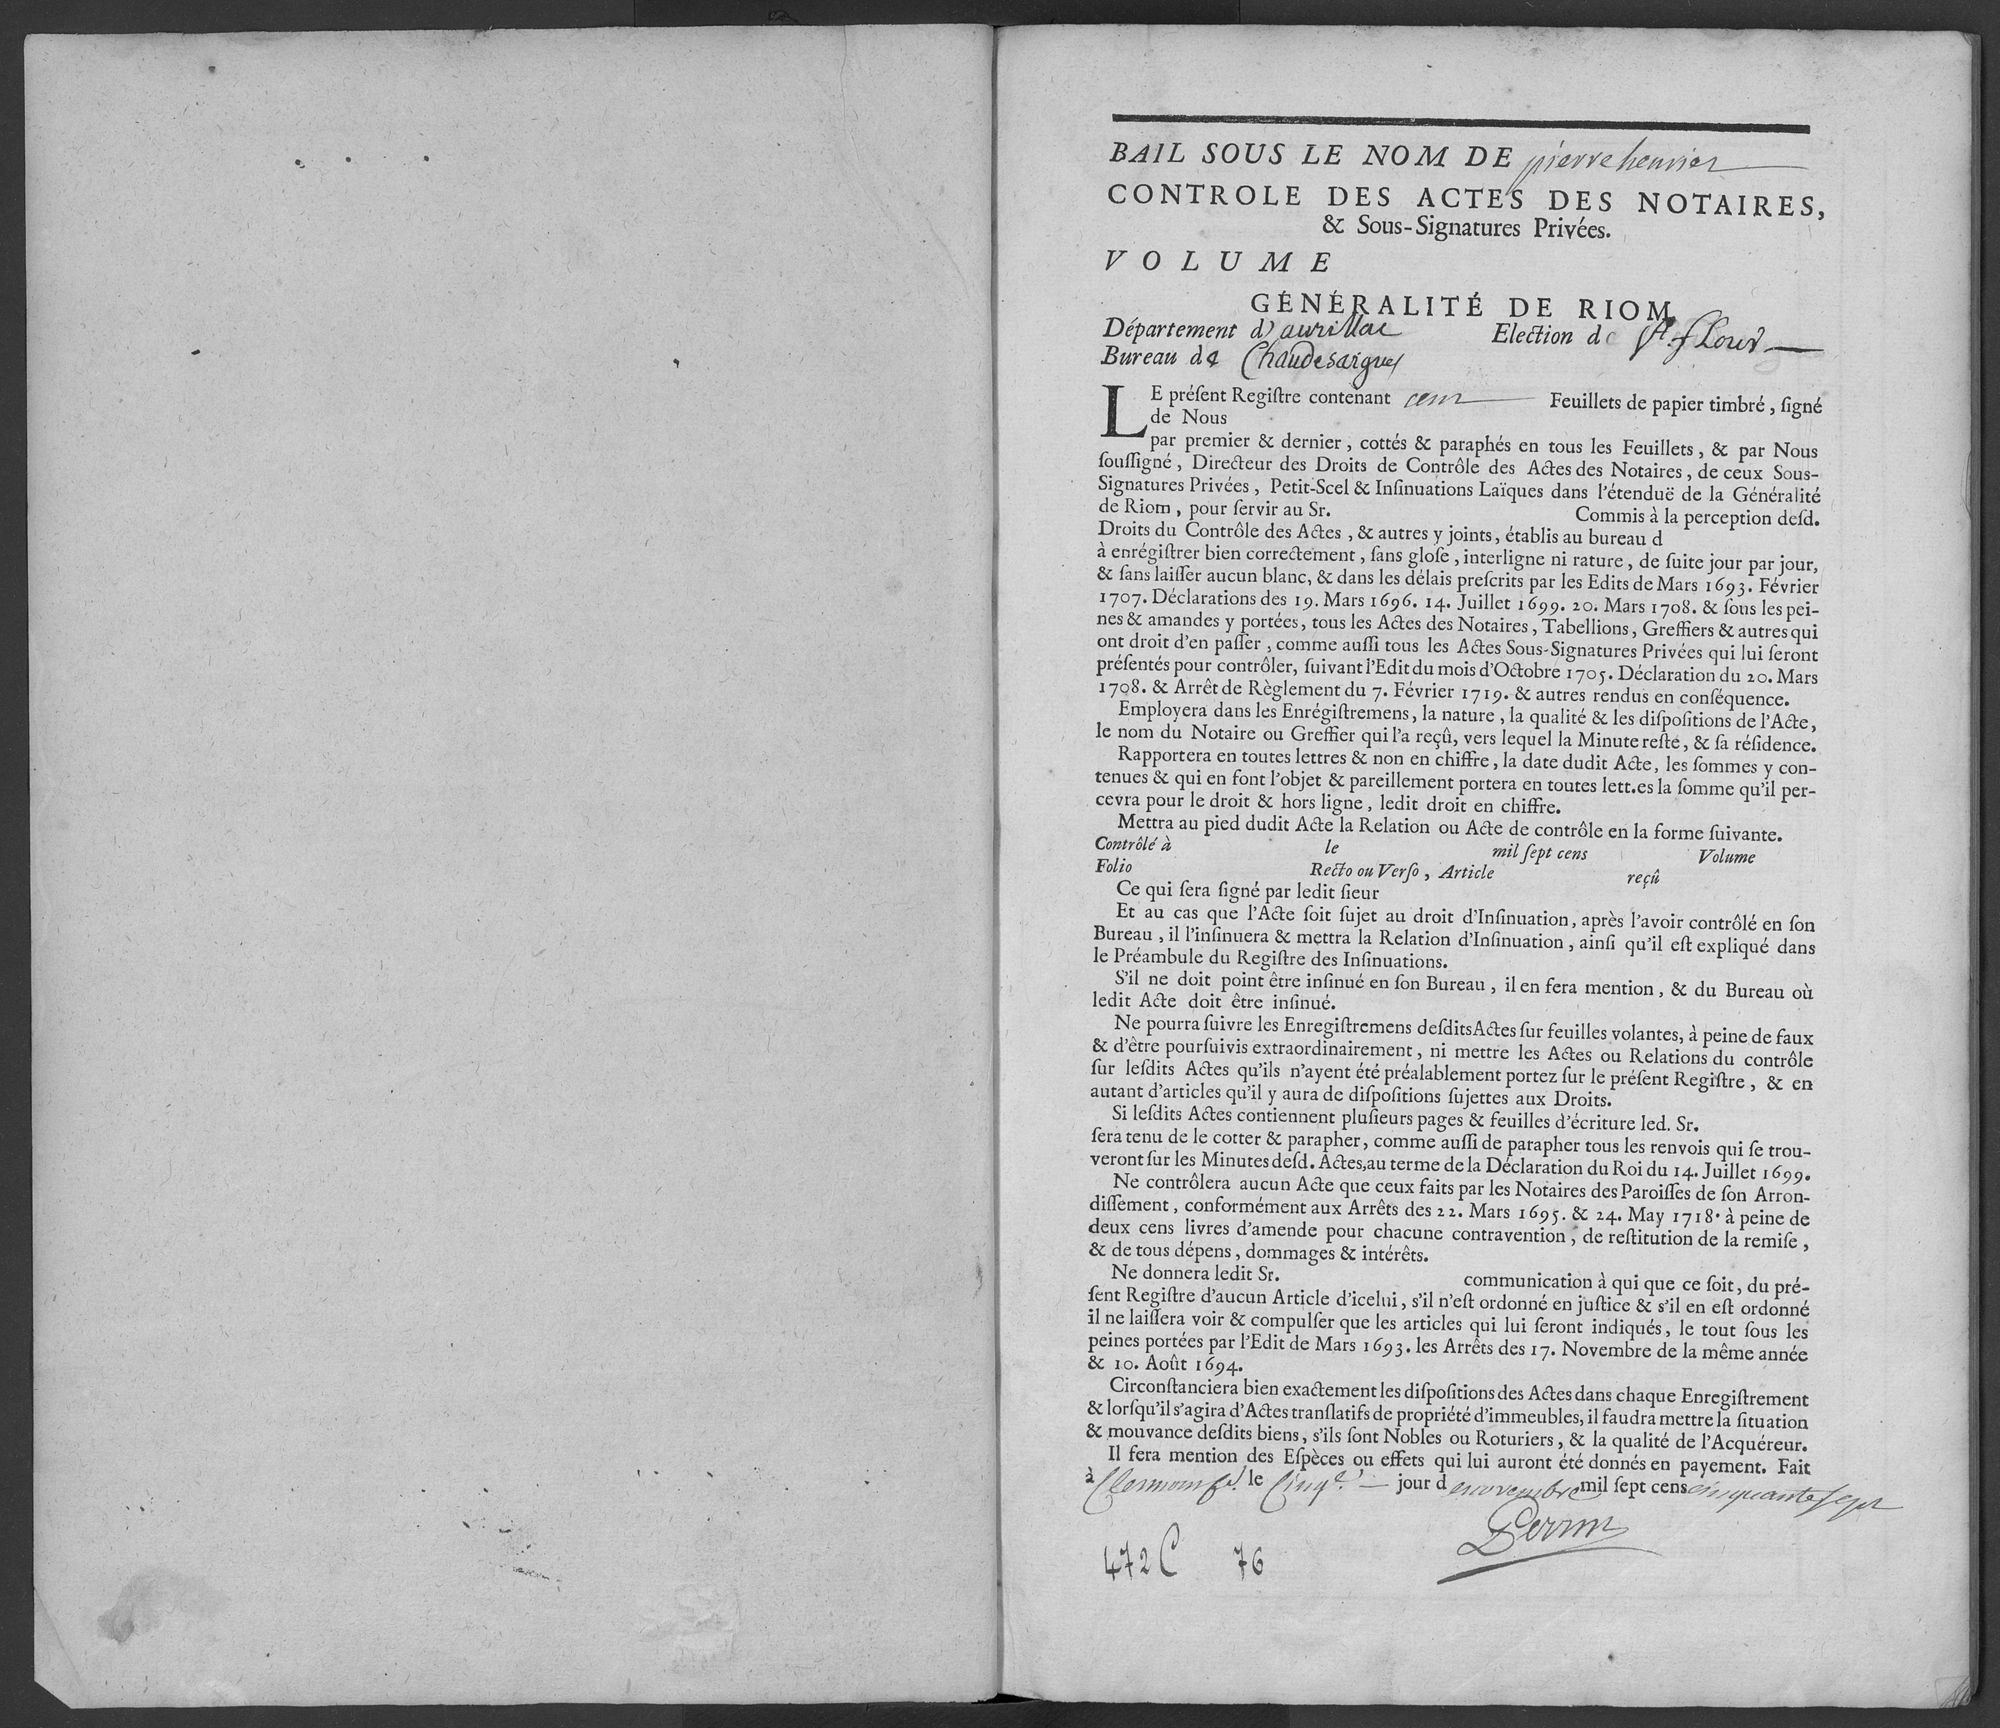 BAIL SOUS LE NOM DE pierre henriet
CONTROLE DES ACTES DES NOTAIRES,
& Sous-Signatures Privées.
VOLUME
GÉNÉRALITÉ DE RIOM
Département d'aurillac Election de St. flour
Bureau de Chaudesaigues
LE préſent Regiſtre contenant cent Feuillets de papier timbré, ſigné
de Nous
par premier & dernier, cottés & paraphés en tous les Feuillets, & par Nous
ſouſſigné, Directeur des Droits de Contrôle des Actes des Notaires, de ceux Sous-
Signatures Privées, Petit-Scel & Inſinuations Laïques dans l'étenduë de la Généralité
de Riom, pour ſervir au Sr. Commis à la perception deſd.
Droits du Contrôle des Actes, & autres y joints, établis au bureau d
à enrégiſtrer bien correctement, ſans gloſe, interligne ni rature, de ſuite jour par jour,
& ſans laiſſer aucun blanc, & dans les délais preſcrits par les Edits de Mars 1693. Février
1707. Déclarations des 19. Mars 1696. 14. Juillet 1699. 20. Mars 1708. & ſous les pei-
nes & amandes y portées, tous les Actes des Notaires, Tabellions, Greffiers & autres qui
ont droit d'en paſſer, comme auſſi tous les Actes Sous-Signatures Privées qui lui ſeront
préſentés pour contrôler, ſuivant l'Edit du mois d'Octobre 1705. Déclaration du 20. Mars
1708. & Arrêt de Règlement du 7. Février 1719. & autres rendus en conſéquence.
Employera dans les Enrégiſtremens, la nature, la qualité & les diſpoſitions de l'Acte,
le nom du Notaire ou Greffier qui l'a reçû, vers lequel la Minute reſte, & ſa réſidence.
Rapportera en toutes lettres & non en chiffre, la date dudit Acte, les ſommes y con-
tenues & qui en font l'objet & pareillement portera en toutes lett.es la ſomme qu'il per-
cevra pour le droit & hors ligne, ledit droit en chiffre.
Mettra au pied dudit Acte la Relation ou Acte de contrôle en la forme ſuivante.
Contrôlé à le mil ſept cens Volume
Folio Recto ou Verſo, Article reçû
Ce qui ſera ſigné par ledit ſieur
Et au cas que l'Acte ſoit ſujet au droit d'Inſinuation, après l'avoir contrôlé en ſon
Bureau, il l'inſinuera & mettra la Relation d'Inſinuation, ainſi qu'il eſt expliqué dans
le Préambule du Regiſtre des Inſinuations.
S'il ne doit point être inſinué en ſon Bureau, il en fera mention, & du Bureau où
ledit Acte doit être inſinué.
Ne pourra ſuivre les Enregiſtremens deſdits Actes ſur feuilles volantes, à peine de faux
& d'être pourſuivis extraordinairement, ni mettre les Actes ou Relations du contrôle
ſur leſdits Actes qu'ils n'ayent été préalablement portez ſur le préſent Regiſtre, & en
autant d'articles qu'il y aura de diſpoſitions ſujettes aux Droits.
Si leſdits Actes contiennent pluſieurs pages & feuilles d'écriture led. Sr.
ſera tenu de le cotter & parapher, comme auſſi de parapher tous les renvois qui ſe trou-
veront ſur les Minutes deſd. Actes, au terme de la Déclaration du Roi du 14. Juillet 1699.
Ne contrôlera aucun Acte que ceux faits par les Notaires des Paroiſſes de ſon Arron-
diſſement, conformément aux Arrêts des 22. Mars 1695. & 24. May 1718. à peine de
deux cens livres d'amende pour chacune contravention, de reſtitution de la remiſe,
& de tous dépens, dommages & intérêts.
Ne donnera ledit Sr. communication à qui que ce ſoit, du pré-
ſent Regiſtre d'aucun Article d'icelui, s'il n'eſt ordonné en juſtice & s'il en eſt ordonné
il ne laiſſera voir & compulſer que les articles qui lui ſeront indiqués, le tout ſous les
peines portées par l'Edit de Mars 1693. les Arrêts des 17. Novembre de la même année
& 10. Août 1694.
Circonſtanciera bien exactement les diſpoſitions des Actes dans chaque Enregiſtrement
& lorſqu'il s'agira d'Actes tranſlatifs de propriété d'immeubles, il faudra mettre la ſituation
& mouvance deſdits biens, s'ils ſont Nobles ou Roturiers, & la qualité de l'Acquéreur.
Il fera mention des Eſpèces ou effets qui lui auront été donnés en payement. Fait
à Clermont fd. le Cinqe. jour de novembre mil ſept cens cinquante sept
Perrin
472 C 76